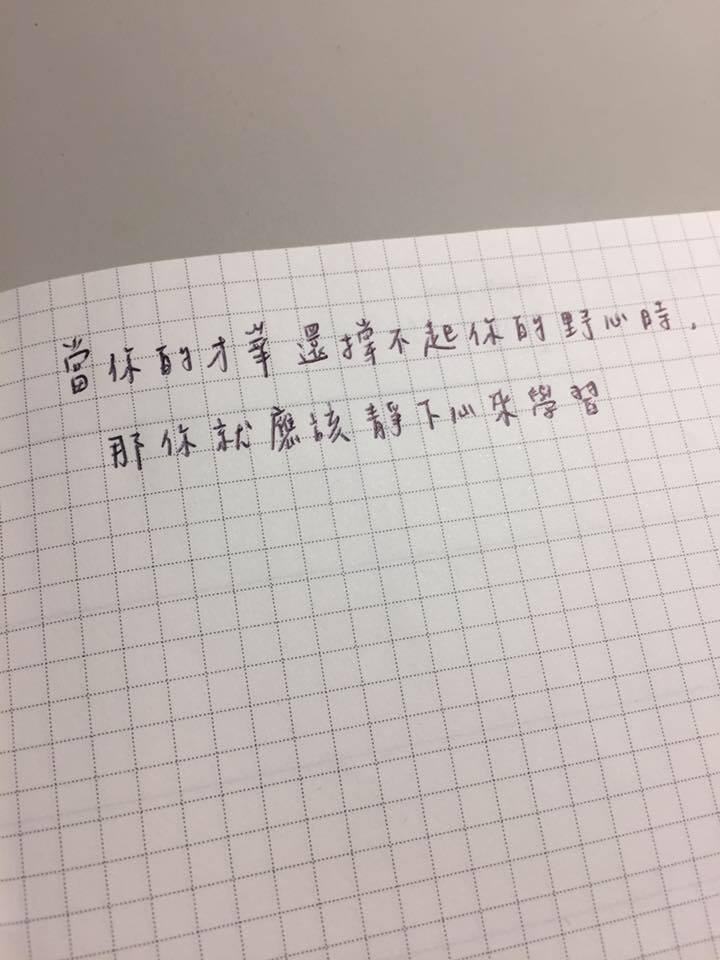 當你的才華還撐不起你的野心時，
那你就應該靜下心來學習